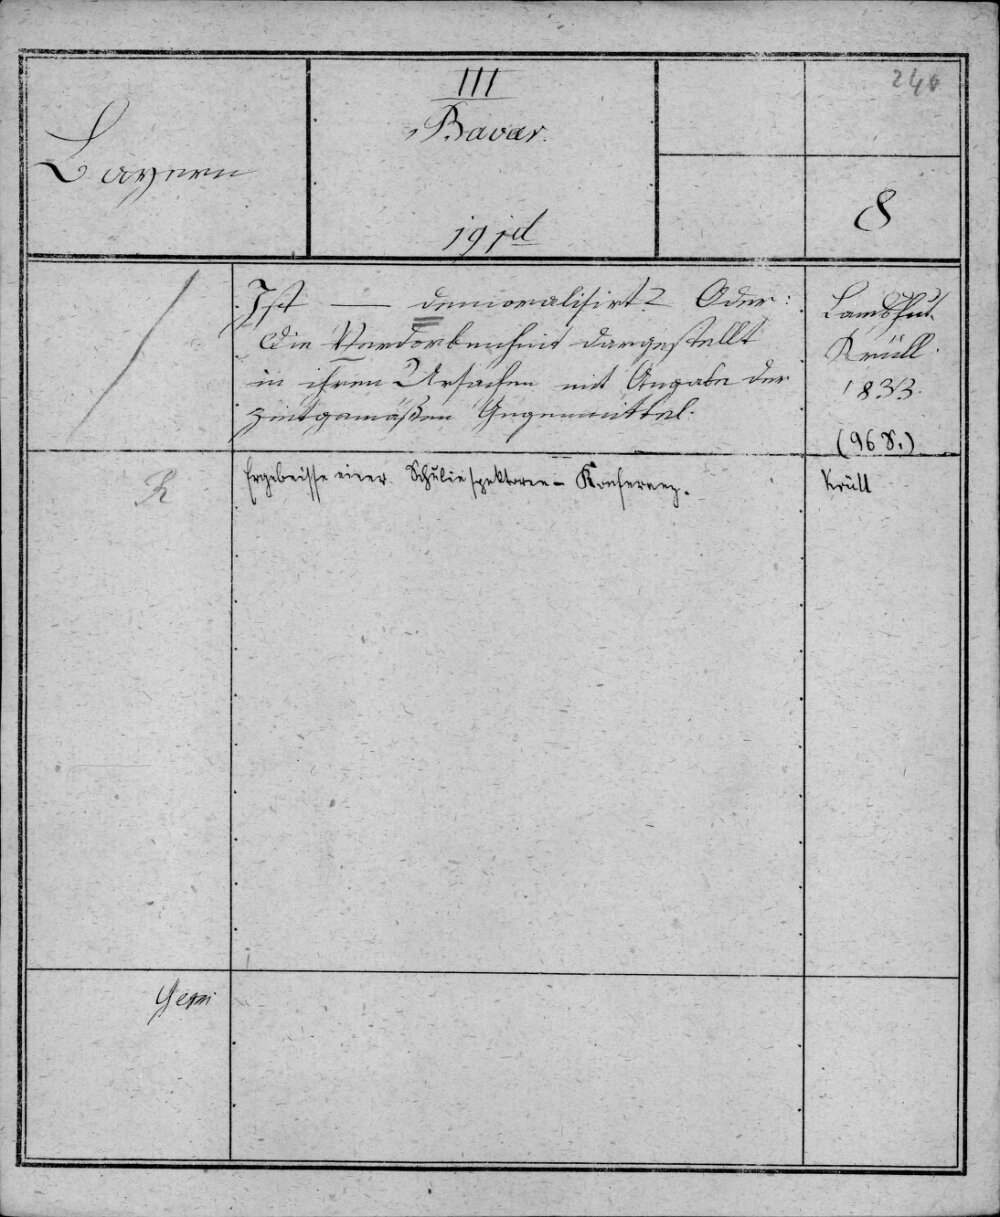 Bayern
III
Bavar.
19 id
246
8
Ist — demoralisirt? Oder:
Die Verdorbenheit dargestellt
in ihren Ursachen mit Angabe der
zeitgemäßen Gegenmittel.
Landshut.
Krüll.
1833.
(96 S.)
R
Ergebnisse einer Schulinspektoren-Konferenz.
Krüll